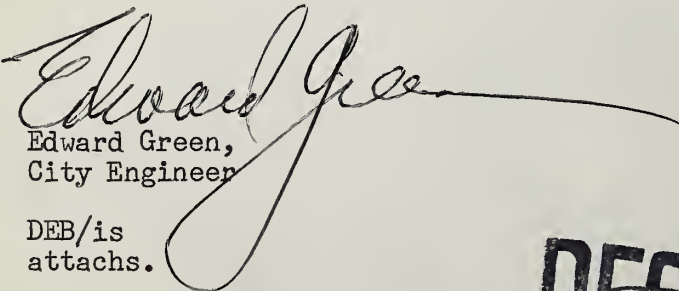 Edward Green
Edward Green,
City Engineer
DEB/is
attachs.